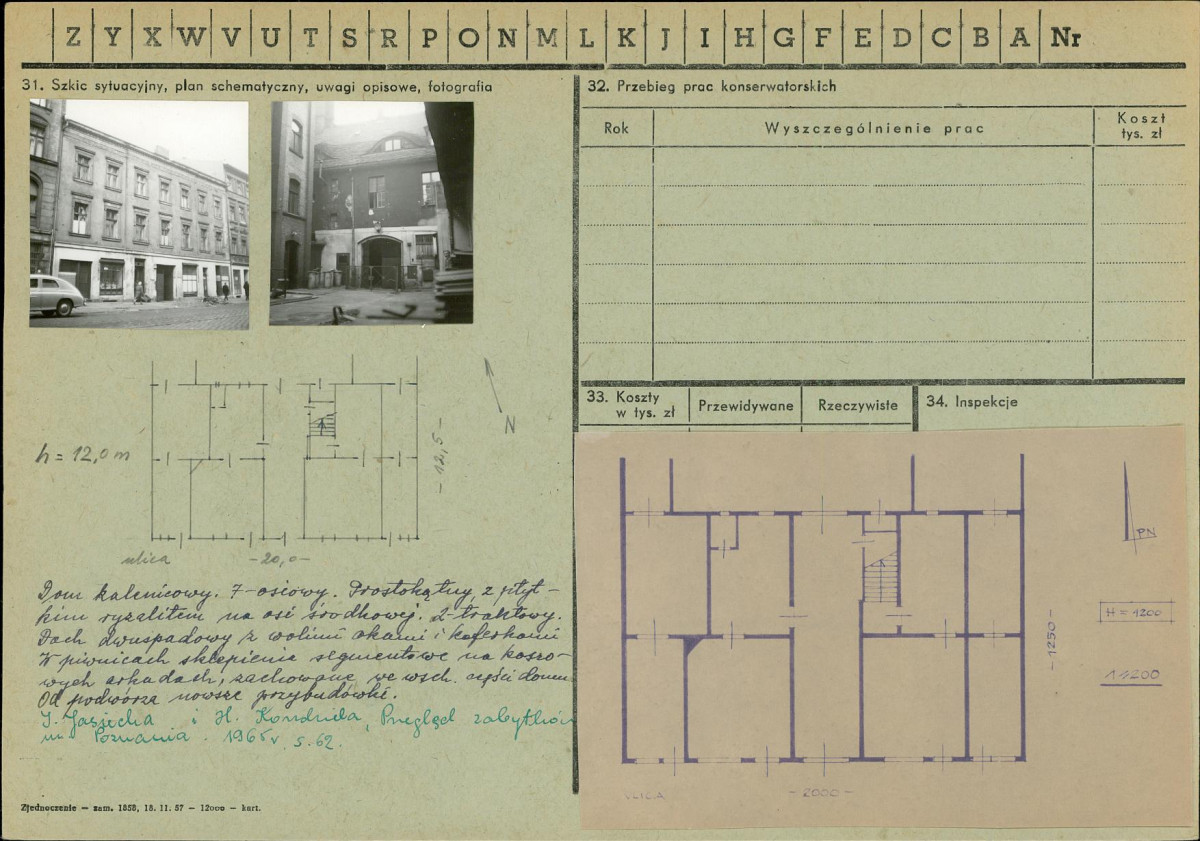 Z Y X W V U T S R P O N M L K J I H G F E D C B A Nr
31. Szkic sytuacyjny, plan schematyczny, uwagi opisowe, fotografia
h = 12,0 m
N
- 12,5 -
ulica
- 20,0 -
Dom kalenicowy. 7-osiowy. Prostokątny, z płyt-
kim ryzalitem na osi środkowej. 2-traktowy.
Dach dwuspadowy z wolimi okami i kaferkami
W piwnicach sklepienia segmentowe na koszo-
wych arkadach, zachowane we wsch. części domu
Od podwórza nowsze przybudówki.
i H. Kondziela, Przegląd zabytków
m. Poznania. 1965 r, s. 62.
Zjednoczenie — zam. 1858, 18. 11. 57 — 12000 — kart.
32. Przebieg prac konserwatorskich
Rok
Wyszczególnienie prac
Koszt
tys. zł
33. Koszty
w tys. zł
Przewidywane
Rzeczywiste
34. Inspekcje
PN
H = 1200
- 1250 -
1:200
ULICA
- 2000 -